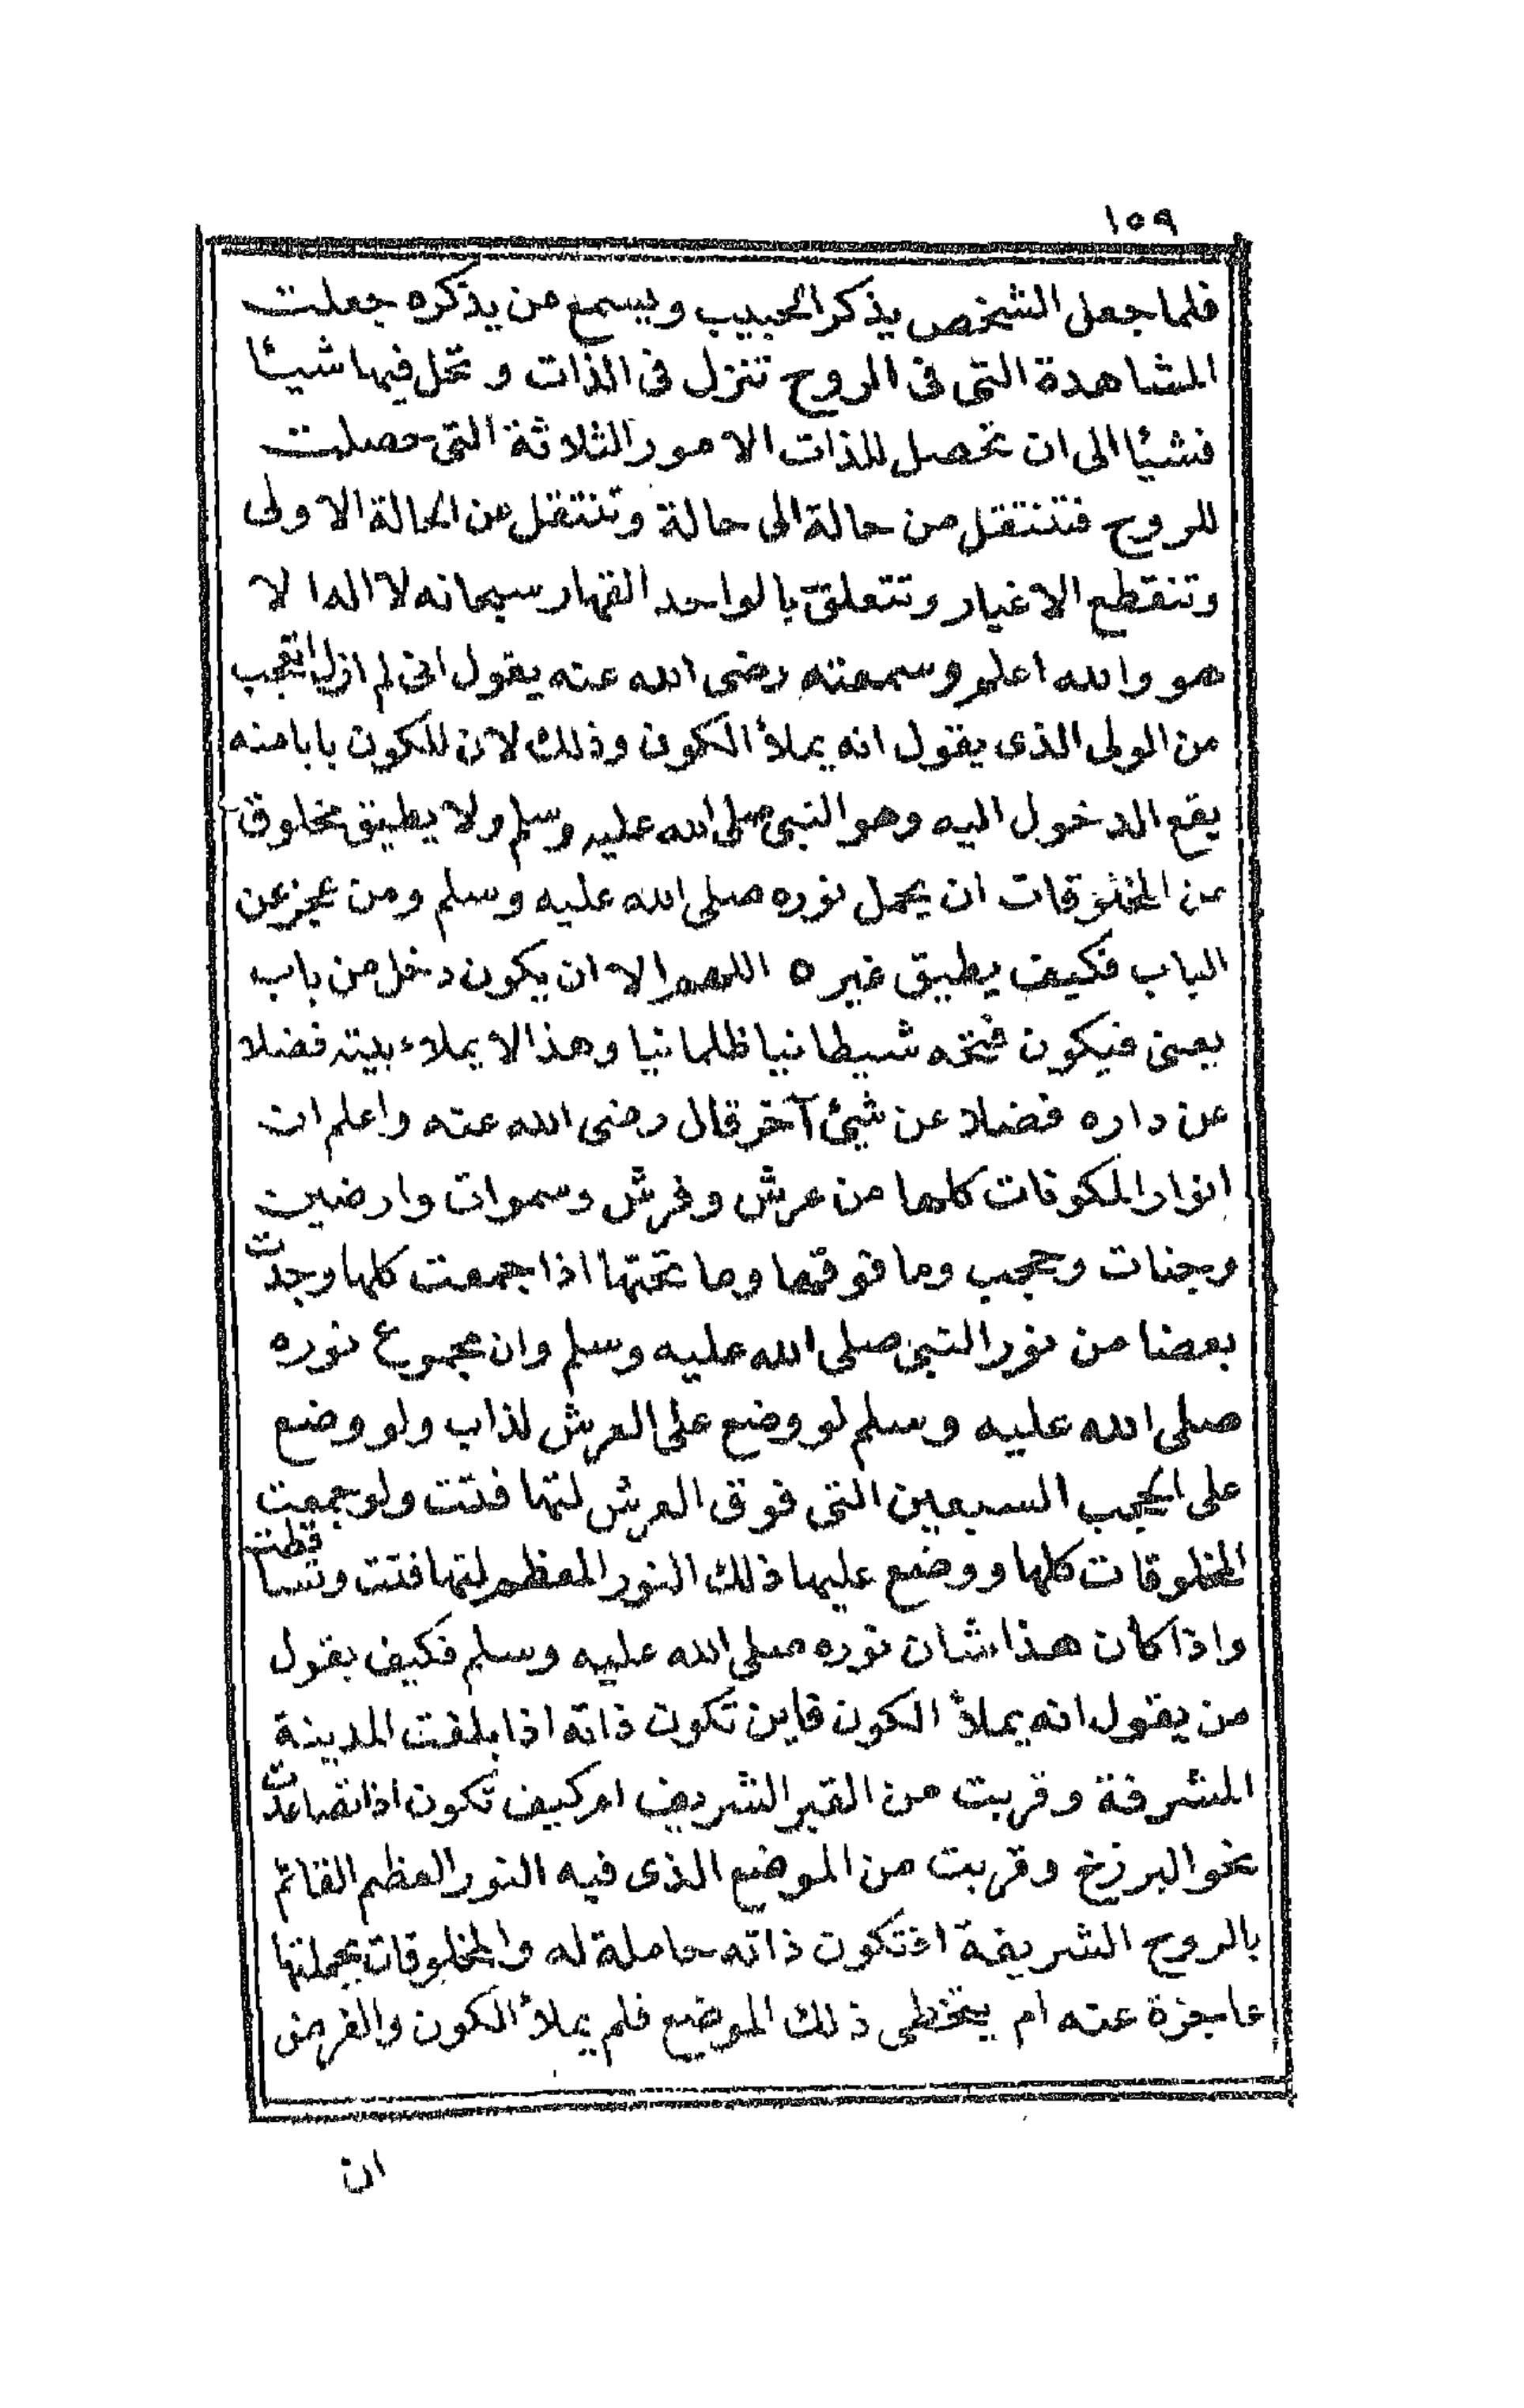 ١٥٩
فلما جعل الشخص يذكر الحبيب ويسمع من يذكره جعلت
المشاهدة التى فى الروح تنزل فى الذات وتحل فيها شيئا
فشيئا الى ان تحصل للذات الامور الثلاثة التى حصلت
للروح فتنتقل من حالة الى حالة وتنتقل عن الحالة الاولى
وتنقطع الاغيار وتتعلق بالواحد القهار سبحانه لا اله الا
هو والله اعلم وسمعته رضى الله عنه يقول انى لم ازل اتعجب
من الولى الذى يقول انه يملأ الكون وذلك لان للكون بابا منه
يقع الدخول اليه وهو النبى صلى الله عليه وسلم ولا يطيق مخلوق
من المخلوقات ان يحمل نوره صلى الله عليه وسلم ومن عجز عن
الباب فكيف يطيق غيره اللهم الا ان يكون دخل من باب
يعنى فيكون فتحه شيطانيا ظلمانيا وهذا لا يملاء بيته فضلا
عن داره فضلا عن شيئ آخر قال رضى الله عنه واعلم ان
انوار المكونات كلها من عرش وفرش وسموات وارضين
وجنات وحجب وما فوقها وما تحتها اذا جمعت كلها وجدت
بعضا من نور النبى صلى الله عليه وسلم وان مجموع نوره
صلى الله عليه وسلم لو وضع على العرش لذاب ولو وضع
على الحجب السبعين التى فوق العرش لتهافتت ولو جمعت
المخلوقات كلها ووضع عليها ذلك النور المعظم لتهافتت وتساقطت
واذا كان هذا شان نوره صلى الله عليه وسلم فكيف يقول
من يقول انه يملأ الكون فاين تكون ذاته اذا بلغت المدينة
المشرفة وقربت من القبر الشريف ام كيف تكون اذا تصاعدت
نحو البرزخ وقربت من الموضع الذى فيه النور العظم القائم
بالروح الشريفة افتكون ذاته حاملة له والمخلوقات بجملتها
عاجزة عنه ام يتخطى ذلك الموضع فلم يملأ الكون والغرض
ان